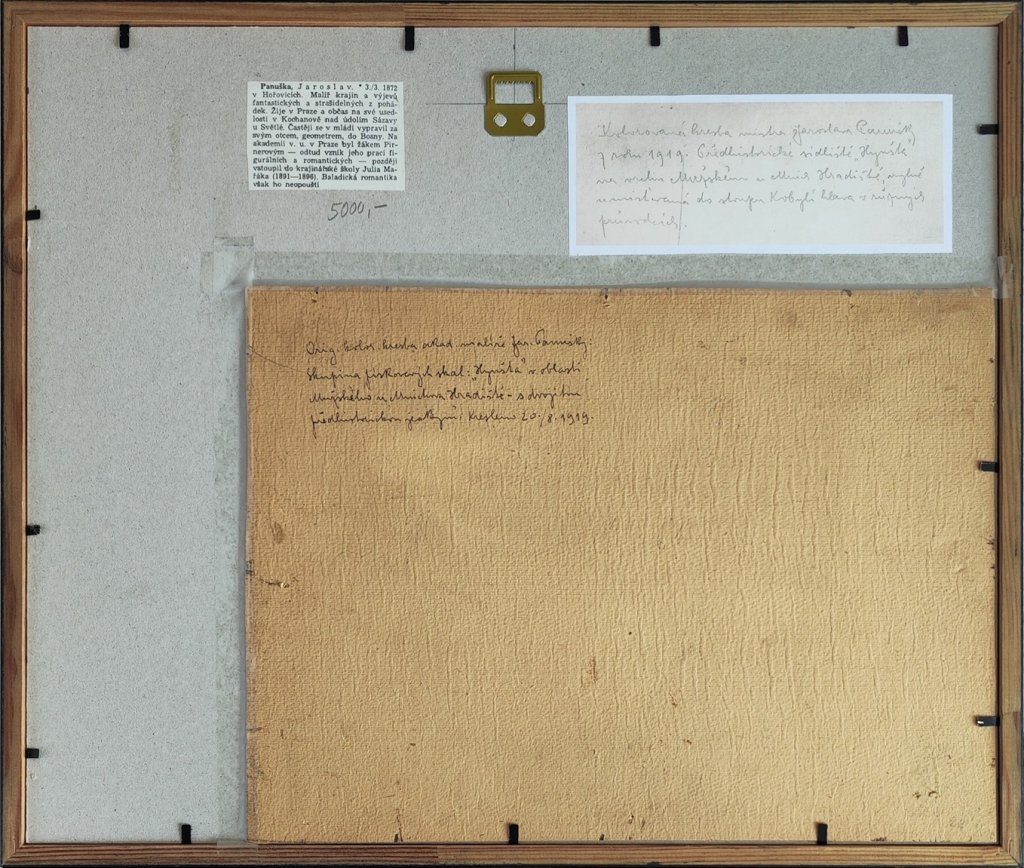 Panuška, Jaroslav. * 3./3. 1872
v Hořovicích. Malíř krajin a výjevů
fantastických a strašidelných z pohá-
dek. Žije v Praze a občas na své used-
losti v Kochanově nad údolím Sázavy
u Světlé. Častěji se v mládí vypravil za
svým otcem, geometrem, do Bosny. Na
akademii v. u. v Praze byl žákem Pir-
nerovým — odtud vznik jeho prací fi-
gurálních a romantických — později
vstoupil do krajinářské školy Julia Ma-
řáka (1891—1896). Baladická romantika
však ho neopouští
5000,-
Kolorovaná kresba mistra Jaroslava Panušky
z roku 1919. Předhistorické sídliště „Hynšta"
na vrchu Mužském u Mnich. Hradiště, mylně
umístěvaná do sloupu Kobylí hlava v různých
průvodcích.
Orig. kolor. kresba akad. malíře Jar. Panušky:
Skupina pískovcových skal: „Hynšta" v oblasti
Mužského u Mnichova Hradiště - s dvojitou
předhistorickou jeskyní: Kresleno 20./8. 1919.